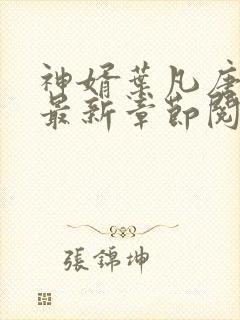 神婿葉凡唐
最新章節閱
張錦坤